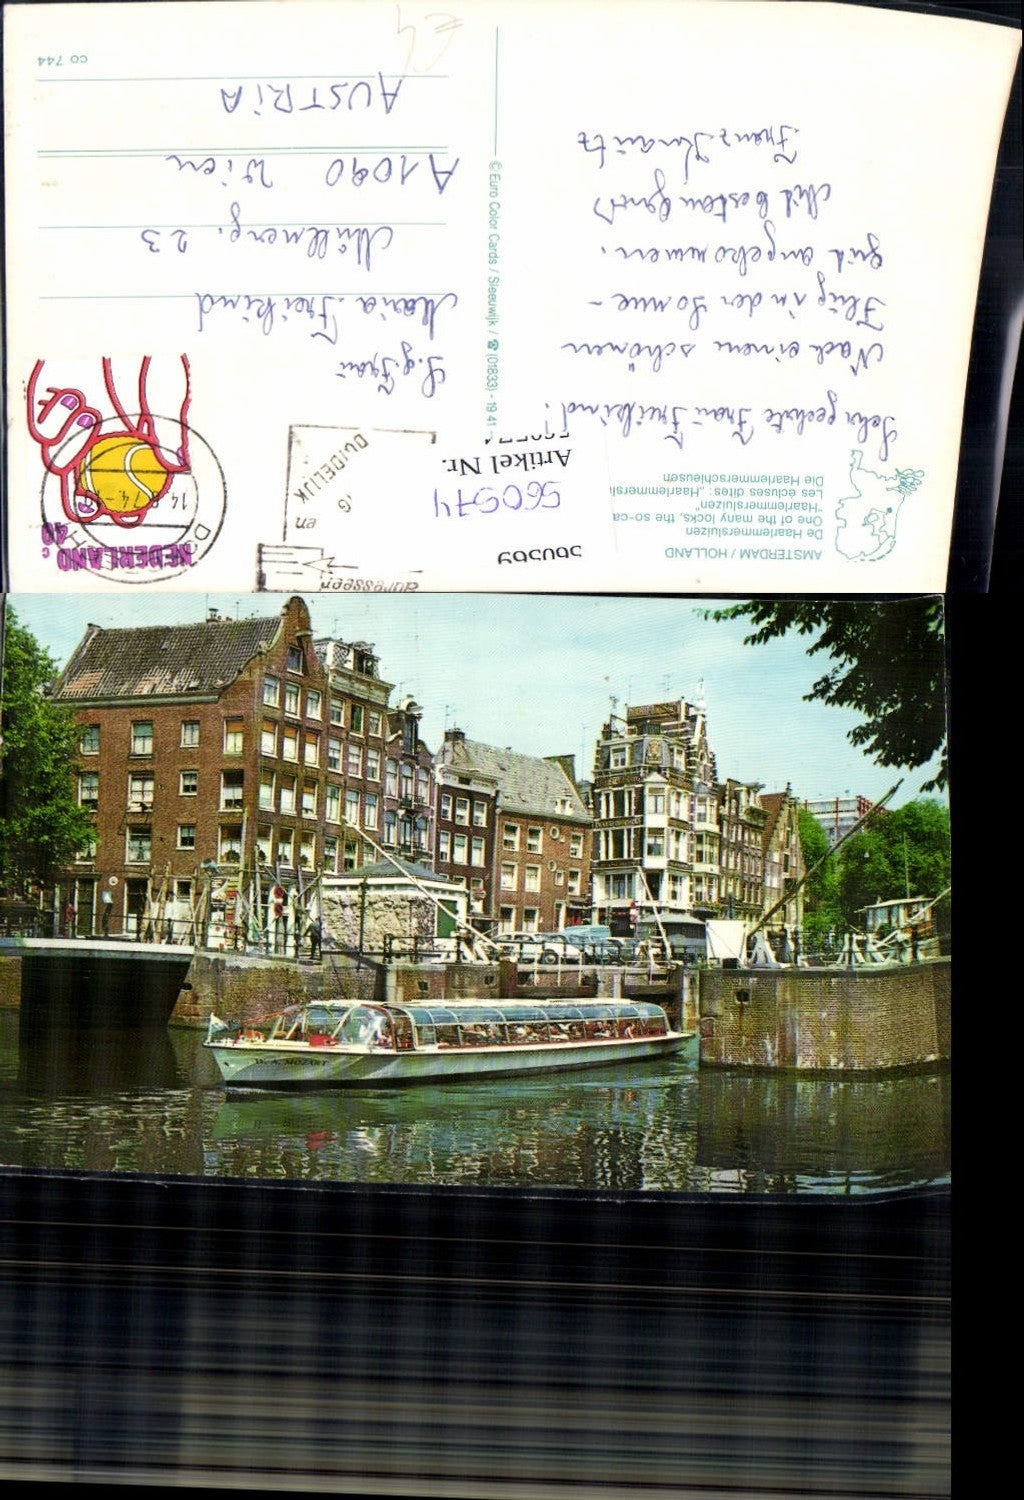 AMSTERDAM / HOLLAND
De Haarlemmersluizen
One of the many locks, the so-ca
"Haarlemmersluizen"
Les écluses dites: „Haarlemmersl
Die Haarlemmerschleusen
Sehr geehrte Frau Freikind!
Nach einem schönen
Flug in der Sonne -
gut angekommen.
Mit besten Grüß
Franz
© Euro Color Cards / Sleeuwijk / ☎ (01833) - 19 41
560569
560574
Artikel Nr.
adresseer
en
DUIDELIJK
NEDERLAND
40 c
S.g. Frau
Maria Freikind
Müllnerg. 23
A 1090 Wien
AUSTRIA
CO 744
€4
W. A. MOZART